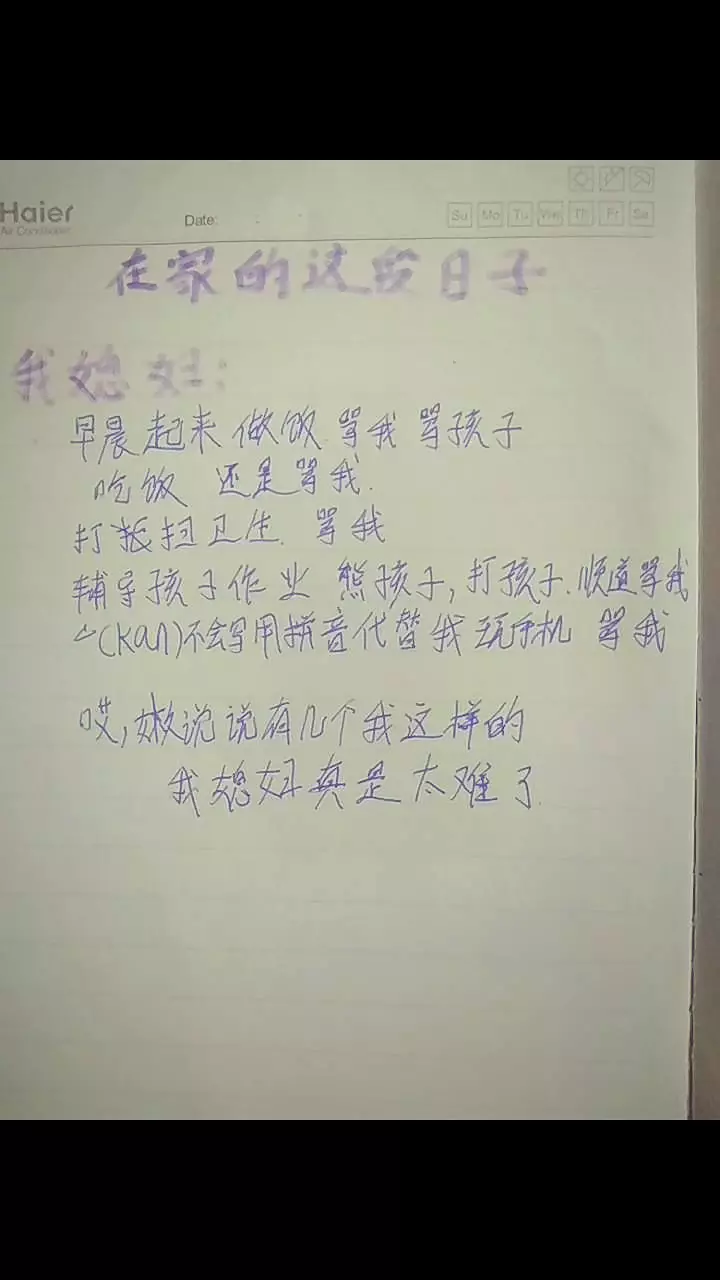 Haier
Air Conditioner
Date:
Su Mo Tu We Th Fr Sa
在家的这些日子
我媳妇:
早晨起来做饭 骂我 骂孩子
吃饭 还是骂我.
打扫卫生. 骂我
辅导孩子作业 熊孩子,打孩子.顺道骂我
(kan)不会写用拼音代替我玩手机 骂我
哎,嫩说说有几个我这样的
我媳妇真是太难了.